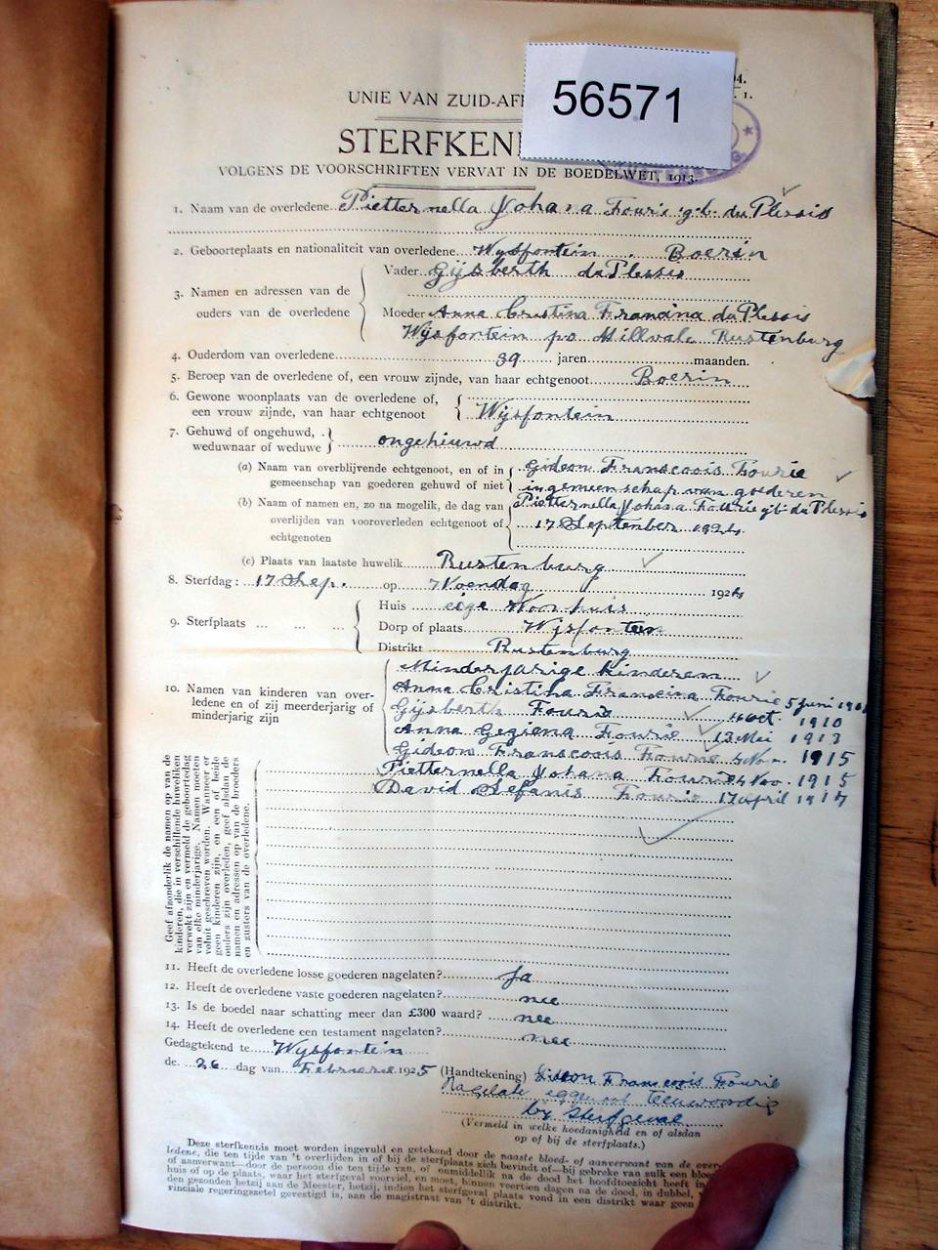 56571
04.
1.
UNIE VAN ZUID-AF
STERFKEN
VOLGENS DE VOORSCHRIFTEN VERVAT IN DE BOEDELWET, 1913.
1. Naam van de overledene Pietternella Johana Fourie g.b. du Plessis
2. Geboorteplaats en nationaliteit van overledene Wysfontein Boerin
3. Namen en adressen van de ouders van de overledene
Vader Gijsberth du Plessis
Moeder Anna Cristina Francina du Plessis
Wysfontein po Millvale Rustenburg
4. Ouderdom van overledene 39 jaren maanden.
5. Beroep van de overledene of, een vrouw zijnde, van haar echtgenoot Boerin
6. Gewone woonplaats van de overledene of,
een vrouw zijnde, van haar echtgenoot Wysfontein
7. Gehuwd of ongehuwd, weduwnaar of weduwe ongehiuwd
(a) Naam van overblijvende echtgenoot, en of in Gideon Franscoois Fourie
gemeenschap van goederen gehuwd of niet in gemeenschap van goederen
(b) Naam of namen en, zo na mogelik, de dag van Pietternella Johana Fourie gb du Plessis
overlijden van vooroverleden echtgenoot of 17 September 1924
echtgenoten
(c) Plaats van laatste huwelik Rustenburg
8. Sterfdag: 17 Sep. op Woendag 1924
9. Sterfplaats ... ... ...
Huis eige Woonhuis
Dorp of plaats Wysfontein
Distrikt Rustenburg
10. Namen van kinderen van overledene en of zij meerderjarig of minderjarig zijn
Minderjarige kinderen
Anna Cristina Francina Fourie 5 Juni
Gijsberth Fourie Oct 1910
Anna Gegiena Fourie 13 Mei 1913
Gideon Franscoois Fourie 4 Nov. 1915
Pietternella Johana Fourie 4 Nov. 1915
David Stefanis Fourie 17 april 1917
Geef afzonderlik de namen op van de
kinderen, die in verschillende huweliken
verwekt zijn en vermeld de geboortedag
van elke minderjarige. Namen moeten
voluit geschreven worden. Wanneer er
geen kinderen zijn, en een of beide
ouders zijn overleden, geef alsdan de
namen en adressen op van de broeders
en zusters van de overledene.
11. Heeft de overledene losse goederen nagelaten? Ja
12. Heeft de overledene vaste goederen nagelaten? nee
13. Is de boedel naar schatting meer dan £300 waard? nee
14. Heeft de overledene een testament nagelaten? nee
Gedagtekend te Wysfontein
de 26 dag van Februarie 1925 (Handtekening) Gideon Franscoois Fourie
Nagelate
by sterfgeval
(Vermeld in welke hoedanigheid en of alsdan
op of bij de sterfplaats.)
Deze sterfkennis moet worden ingevuld en getekend door de naaste bloed- of aanverwant van de over-
ledene, die ten tijde van 't overlijden in of bij de sterfplaats zich bevindt of—bij gebreke van sulk een bloed
of aanverwant—door de persoon die ten tijde van, of onmiddelik na de dood het hoofdtoezicht heeft in
huis of op de plaats, waar het sterfgeval voorviel, en moet, binnen veertien dagen na de dood, in dubbel,
den gezonden hetzij aan de Meester, hetzij, indien het sterfgeval plaats vond in een distrikt waar geen
vinciale regeringszetel gevestigd is, aan de magistraat van 't distrikt.